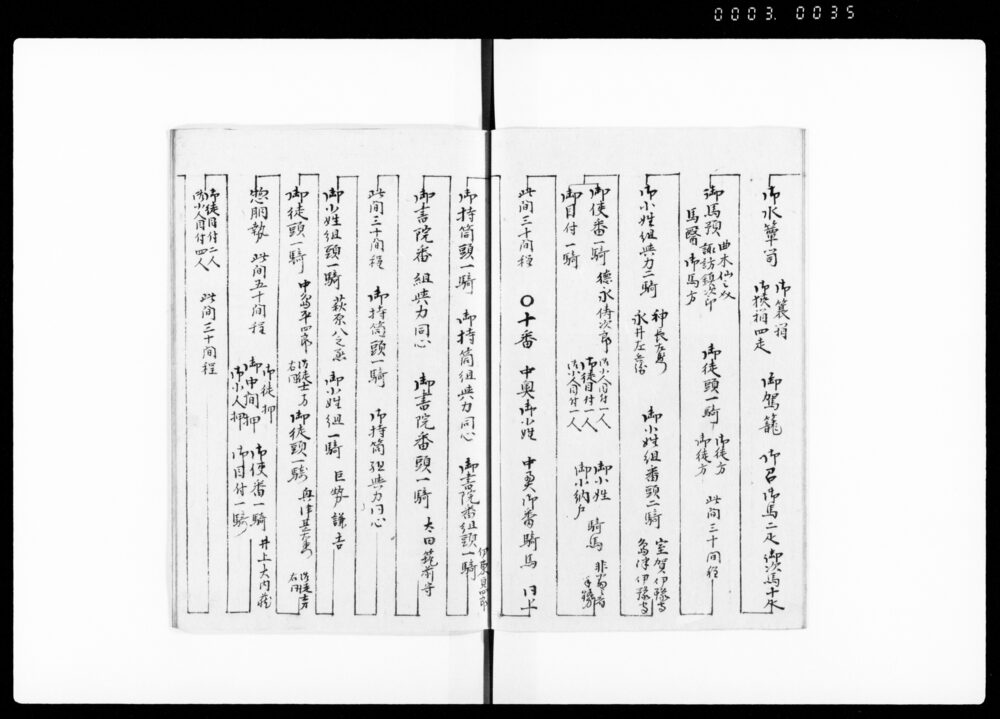 0003. 0035
御水箪司 御簑箱 御挾箱四走 御駕籠 御召御馬二疋 御次馬十疋
御馬預 曲木仙之丞 諏訪鎮次郎 馬醫 御馬方 御徒頭一騎 御徒方 御徒方 此間三十間程
御小姓組與力二騎 神長左 永井左 御小姓組番頭二騎 室賀伊豫守 島津伊豫守
御使番一騎 德永侍次郎 御小人目付一人 御徒目付一人 御小人目付一人 御小姓 御小納戸 騎馬
御目付一騎
此間三十間程 〇十番 中奥御小姓 中奥御番騎馬 同上
御持筒頭一騎 御持筒組與力同心 御書院番組頭一騎 伊東貞四郎
御書院番組與力同心 御書院番頭一騎 太田筑前守
此間三十間程 御持筒頭一騎 御持筒組與力同心
御小姓組頭一騎 萩原八之 御小姓組一騎 巨勢謙吉
御徒頭一騎 中島平四郎 御徒士方 右同 御徒頭一騎 奥津 御徒士方 右同
惣胴勢 此間五十間程 御徒押 御中間押 御小人押 御使番一騎 井上大内蔵 御目付一騎
御徒目付二人 御小人目付四人 此間三十間程